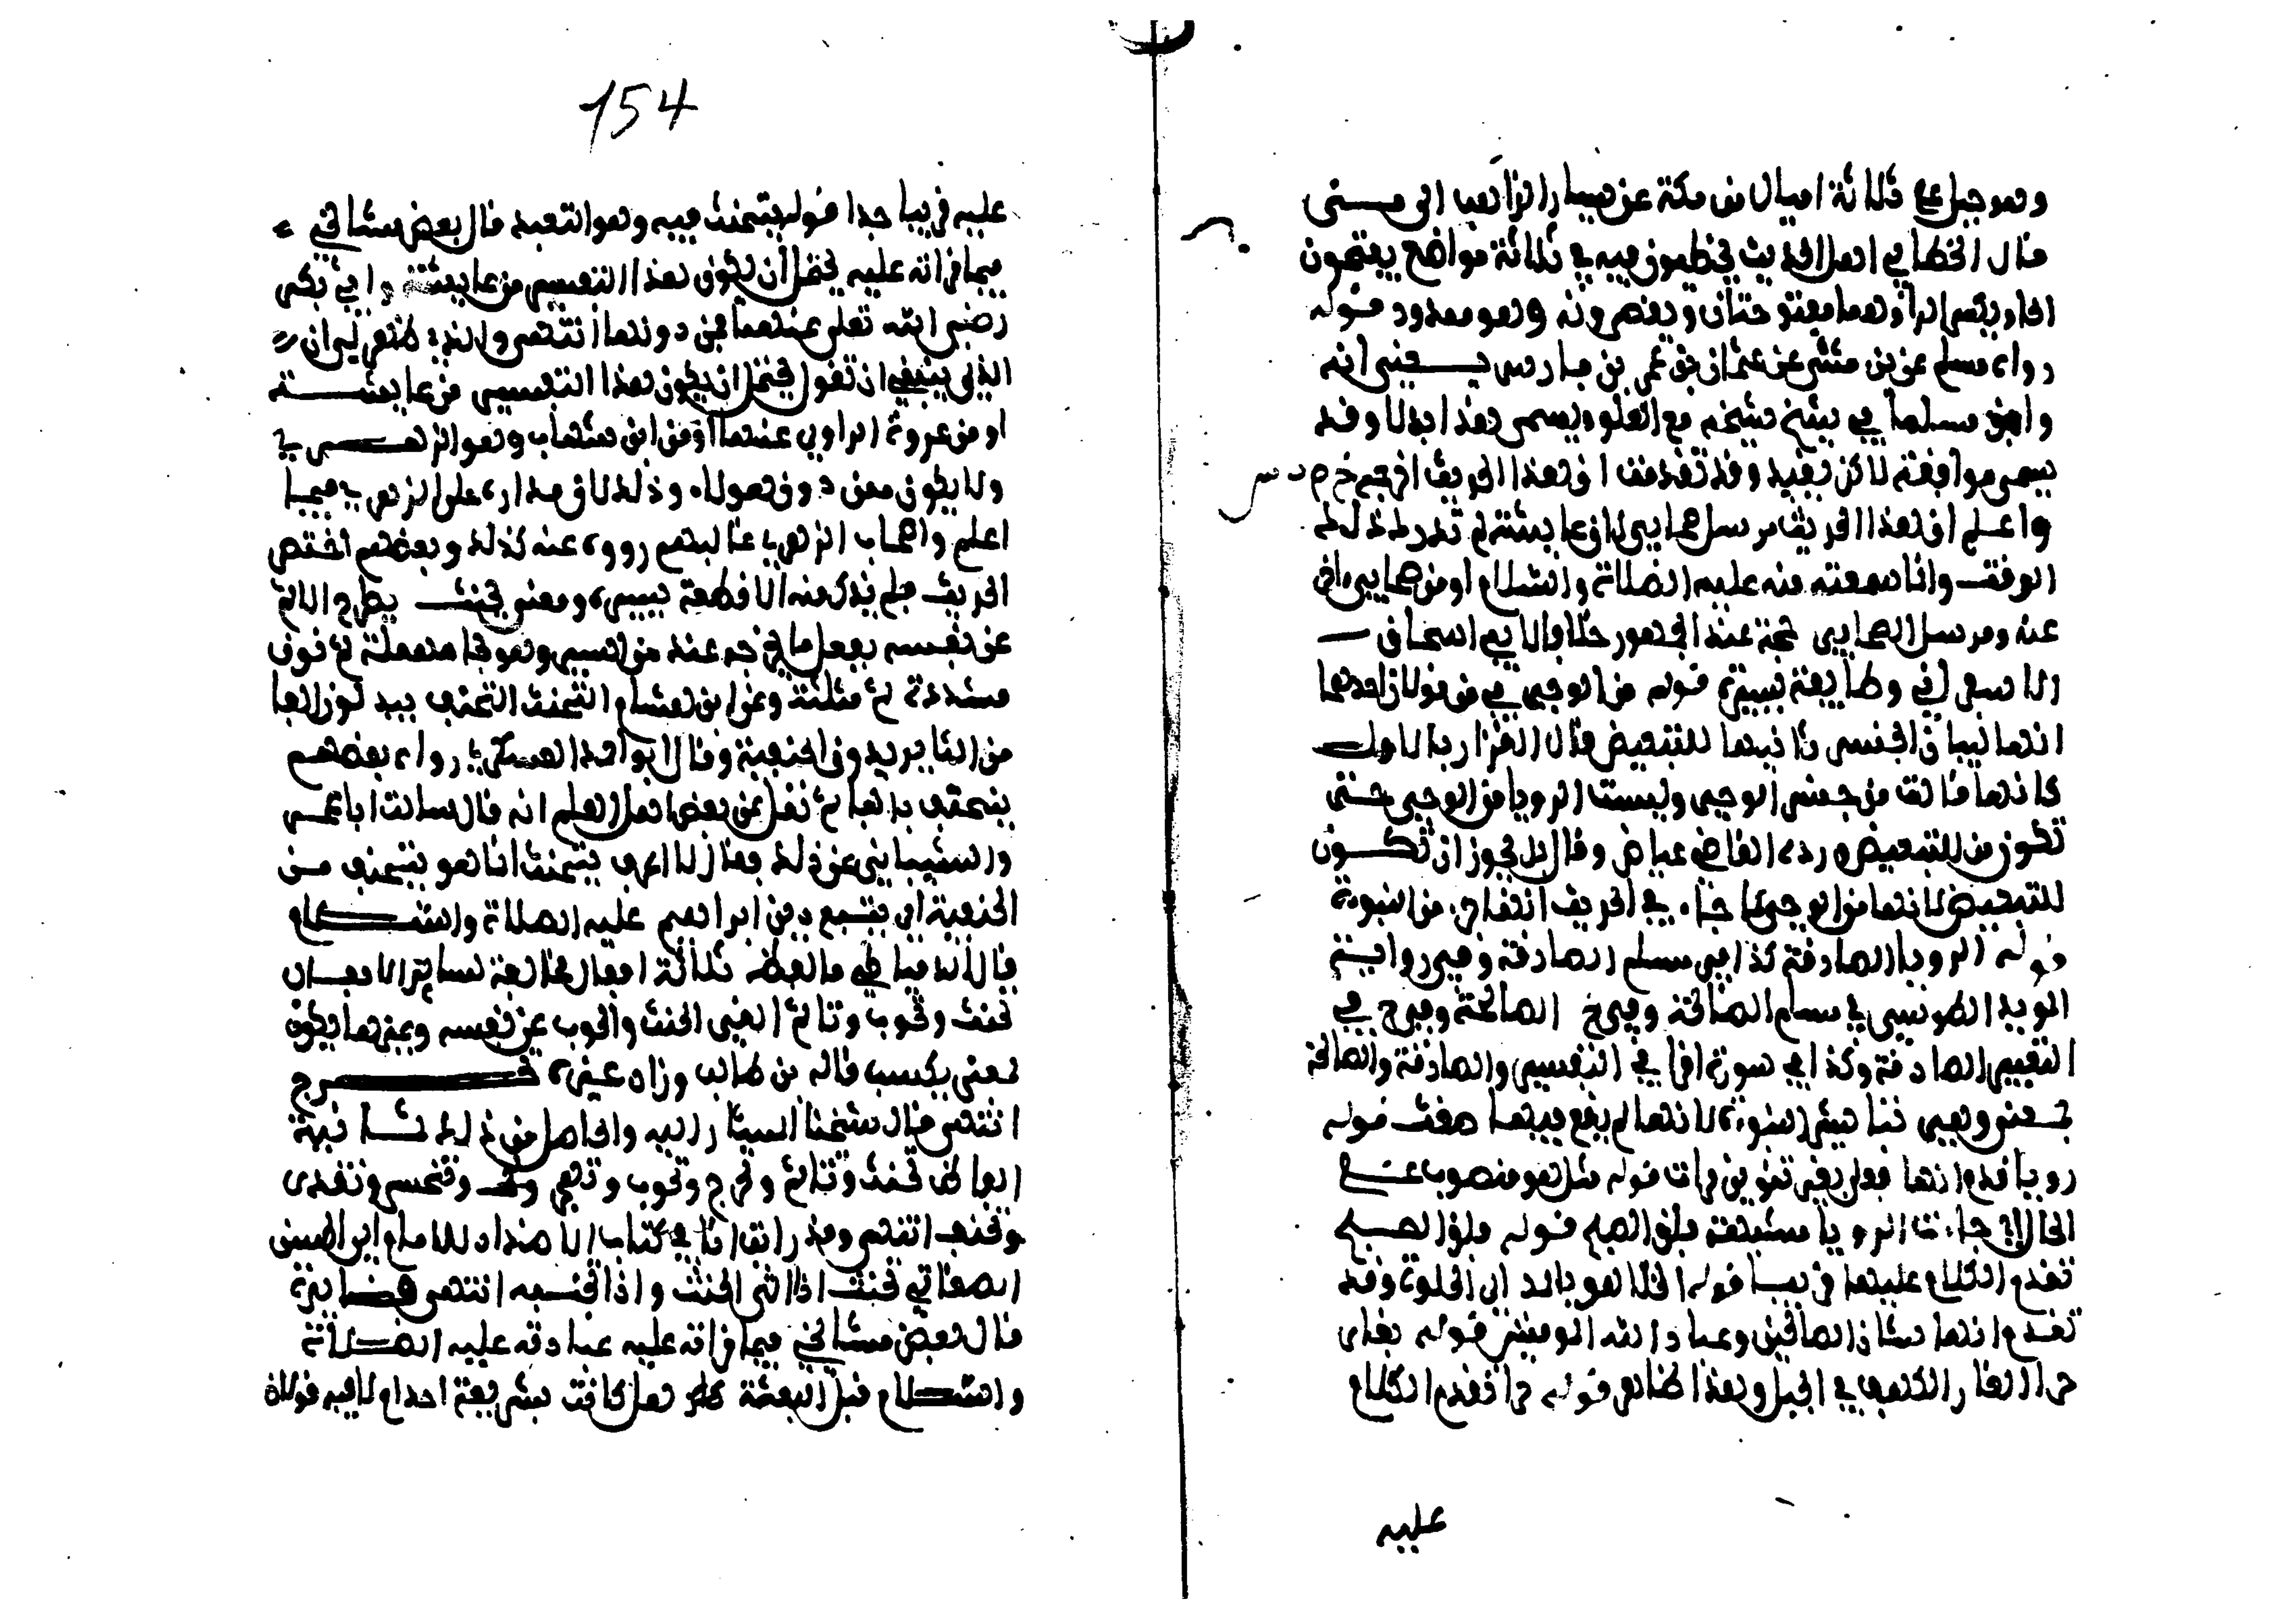 وهو جبل على ثلاثة اميال من مكة عن يسار الذاهب الى منى
قال الخطابي اهل الحديث يخطيون فيه في ثلاثة مواضع يفتحون
الحاء ويكسرون الراء وهما مفتوحتان ويقصرونه وهو ممدود قوله
رواه مسلم عن بن مثنى عن عثمان بن عمر بن فارس يعني انه
وافق مسلما في شيخ شيخه مع العلو ويسمى هذا بدلا وقد
يسمى موافقة لاكن بقيد وقد تقدمت ان هذا الحديث اخرجه خ م ت س
واعلم ان هذا الحديث مرسل صحابي لان عايشة لم تدرك ذلك
الوقت وانما سمعته منه عليه الصلاة والسلام او من صحابي اخر
عنه ومرسل الصحابي حجة عند الجمهور خلافا لابي اسحاق
الاسفرايني وطايفة يسيرة قوله من الوحي في من قولان احدهما
انها لبيان الجنس ثانيهما للتبعيض قال القزاز بالاول
كانها قالت من جنس الوحي وليست الرويا من الوحي حتى
تكون من للتبعيض ورده القاضي عياض وقال بل يجوز ان تكون
للتبعيض لانها من الوحي كما جاء في الحديث انها جزء من النبوءة
قوله الرويا الصادقة كذا في مسلم الصادقة وفي رواية
المويد الطوسي في مسلم الصالحة وفي خ الصالحة وفي خ في
التعبير الصادقة وكذا في سورة اقرا في التفسير والصادقة والصالحة
بمعنى وهي تباشير النبوءة لانها لم يقع فيها ضغث قوله
رويا قدم انها فعلى بغير تنوين فرات قوله مثل هو منصوب على
الحال اي جاءت الرويا مشبهة فلق الصبح قوله فلق الصبح
تقدم الكلام عليها قريبا قوله الخلا هو بالمد اي الخلوة وقد
تقدم انها شان الصالحين وعباد الله المومنين قوله بغار
حرا الغار الكهف في الجبل وهذا ظاهر قوله حرا تقدم الكلام
عليه
154
عليه قريبا جدا قوله يتحنث فيه وهو التعبد قال بعض مشايخي
فيما قراته عليه يحتمل ان يكون هذا التفسير من عايشة وابي بكر
رضي الله تعلى عنهما فمن دونها انتهى والذي ظهر لي ان
الذي ينبغي ان تقول يحتمل ان يكون هذا التفسير من عايشة
او من عروة الراوي عنها او من ابن شهاب وهو الزهري
ولا يكون ممن دون هولاء وذلك لان مداره على الزهري فيما
اعلم واصحاب الزهري غالبهم رووه عنه كذلك وبعضهم اختصر
الحديث فلم يذكر منه الا قطعة يسيرة ومعنى يتحنث يطرح الاثم
عن نفسه بفعل ما يخرجه عنه من البر وهو بحا مهملة ثم نون
مشددة ثم مثلثة وعن ابن هشام التحنث التحنف يبدلون الفا
من الثا يريدون الحنيفية وقال ابو احمد العسكري رواه بعضهم
يتحنف بالفا ثم نقل عن بعض اهل العلم انه قال سالت ابا عمرو
الشيباني عن ذلك فقال لا اعرف يتحنث انما هو يتحنف من
الحنيفية اي يتبع دين ابراهيم عليه الصلاة والسلام
قال المازري ما لفظه ثلاثة افعال مخالفة لسائر الافعال
تحنث وتحوب وتاثم القى الحنث والحوب عن نفسه وغيرها يكون
بمعنى يكسب قاله بن طالب وزاد غيره تحرج
انتهى قال شيخنا المشار اليه والحاصل من ذلك ثمانية
الفاظ تحنث وتاثم وتحرج وتحوب وتهجد وتنجس وتقذر
وتحنف انتهى وقد رايت انا في كتاب الاضداد للامام ابي الحسن
الصغاني تحنث اذا اتى الحنث واذا تجنبه انتهى فايدة
قال بعض مشايخي فيما قراته عليه عبادته عليه الصلاة
والسلام قبل البعثة هل كانت بشريعة احد ام لا فيه قولان